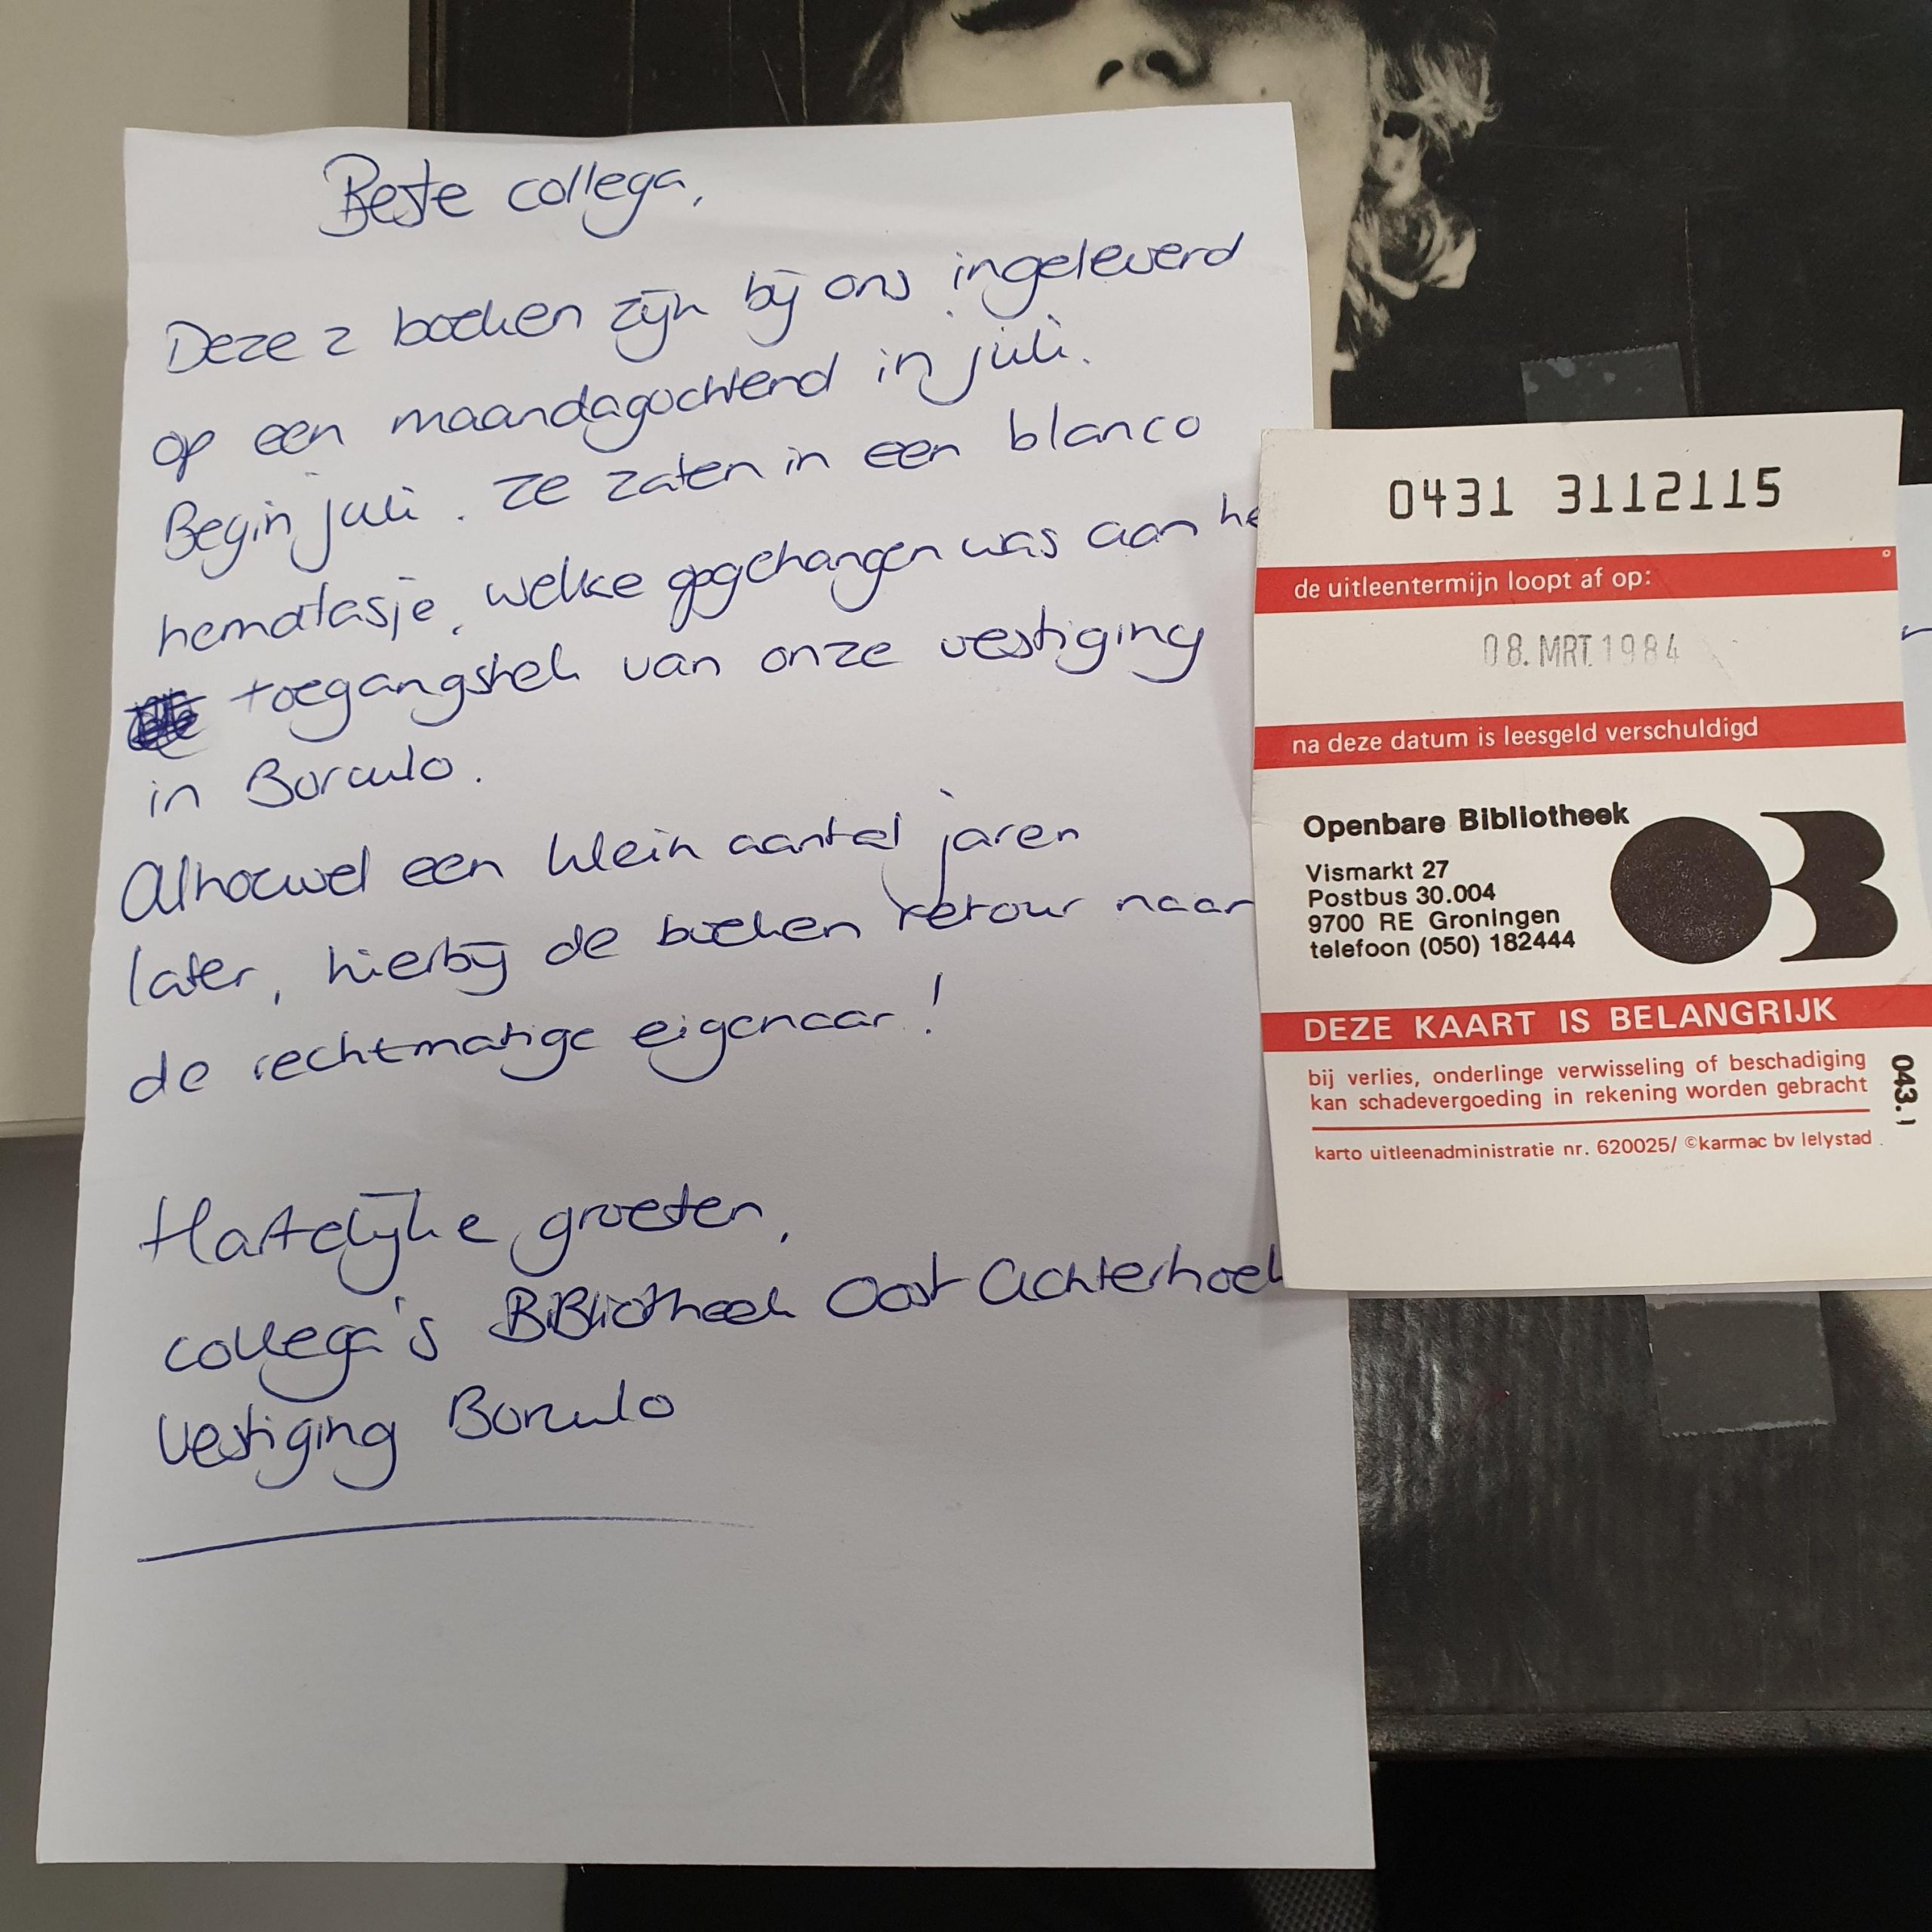 Beste collega,
Deze 2 boeken zijn bij ons ingeleverd
op een maandagochtend in juli.
Begin juli. Ze zaten in een blanco
hematasje, welke opgehangen was aan he
toegangshek van onze vestiging
in Borculo.
Alhoewel een klein aantal jaren
later, hierbij de boeken retour naar
de rechtmatige eigenaar!
Hartelijke groeten,
collega's BiBliotheek Oost Achterhoek
Vestiging Borculo
0431 3112115
de uitleentermijn loopt af op:
08. MRT. 1984
na deze datum is leesgeld verschuldigd
Openbare Bibliotheek
Vismarkt 27
Postbus 30.004
9700 RE Groningen
telefoon (050) 182444
OB
DEZE KAART IS BELANGRIJK
bij verlies, onderlinge verwisseling of beschadiging
kan schadevergoeding in rekening worden gebracht
karto uitleenadministratie nr. 620025/ ©karmac bv lelystad
043.1